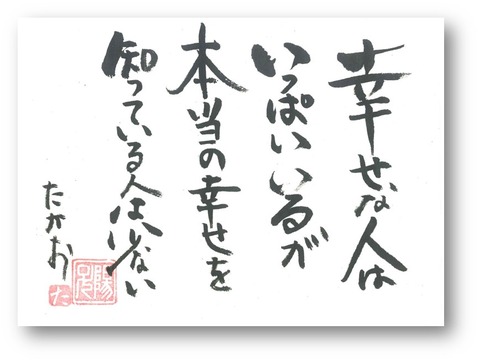 幸せな人は
いっぱいいるが
本当の幸せを
知っている人は少ない
たかお
た